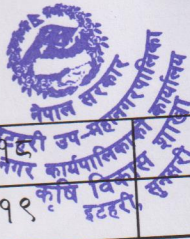 नेपाल सरकार
इटहरी उप-महानगरपालिका
नगर कार्यपालिकाको कार्यालय
कृषि विकास शाखा
इटहरी, सुनसरी
१९